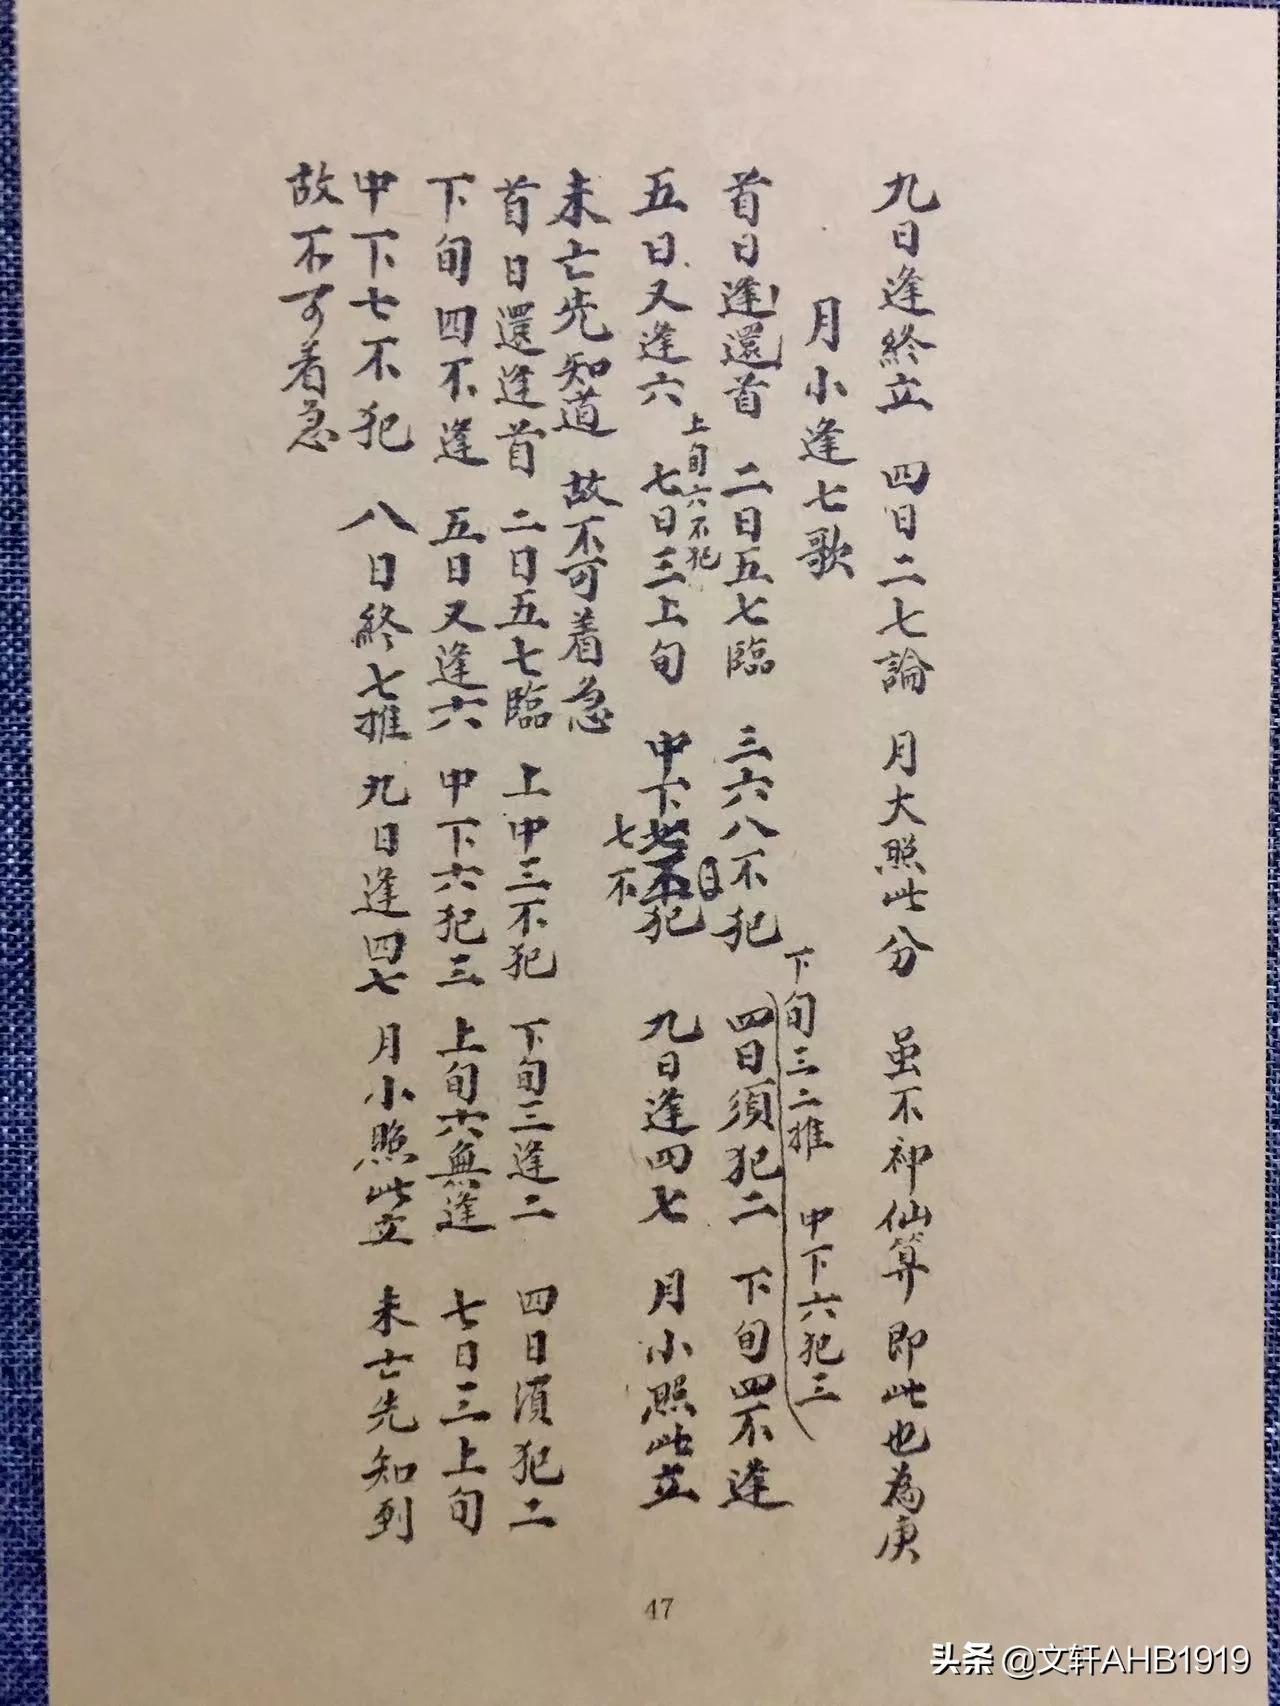 九日逢終立 四日二七論 月大照此分 虽不神仙算 即此也為庚
月小逢七歌
首日逢還首 二日五七臨 三六八不犯 四日須犯二 下旬四不逢
下旬三二推 中下六犯三
五日又逢六 七日三上旬 中下七不犯 九日逢四七 月小照此立
上旬六不犯
日
七不
未亡先知道 故不可着急
首日還逢首 二日五七臨 上中三不犯 下旬三逢二 四日須犯二
下旬四不逢 五日又逢六 中下六犯三 上旬六無逢 七日三上旬
中下七不犯 八日終七推 九日逢四七 月小照此立 未亡先知到
故不可着急
47
头条 @文轩AHB1919